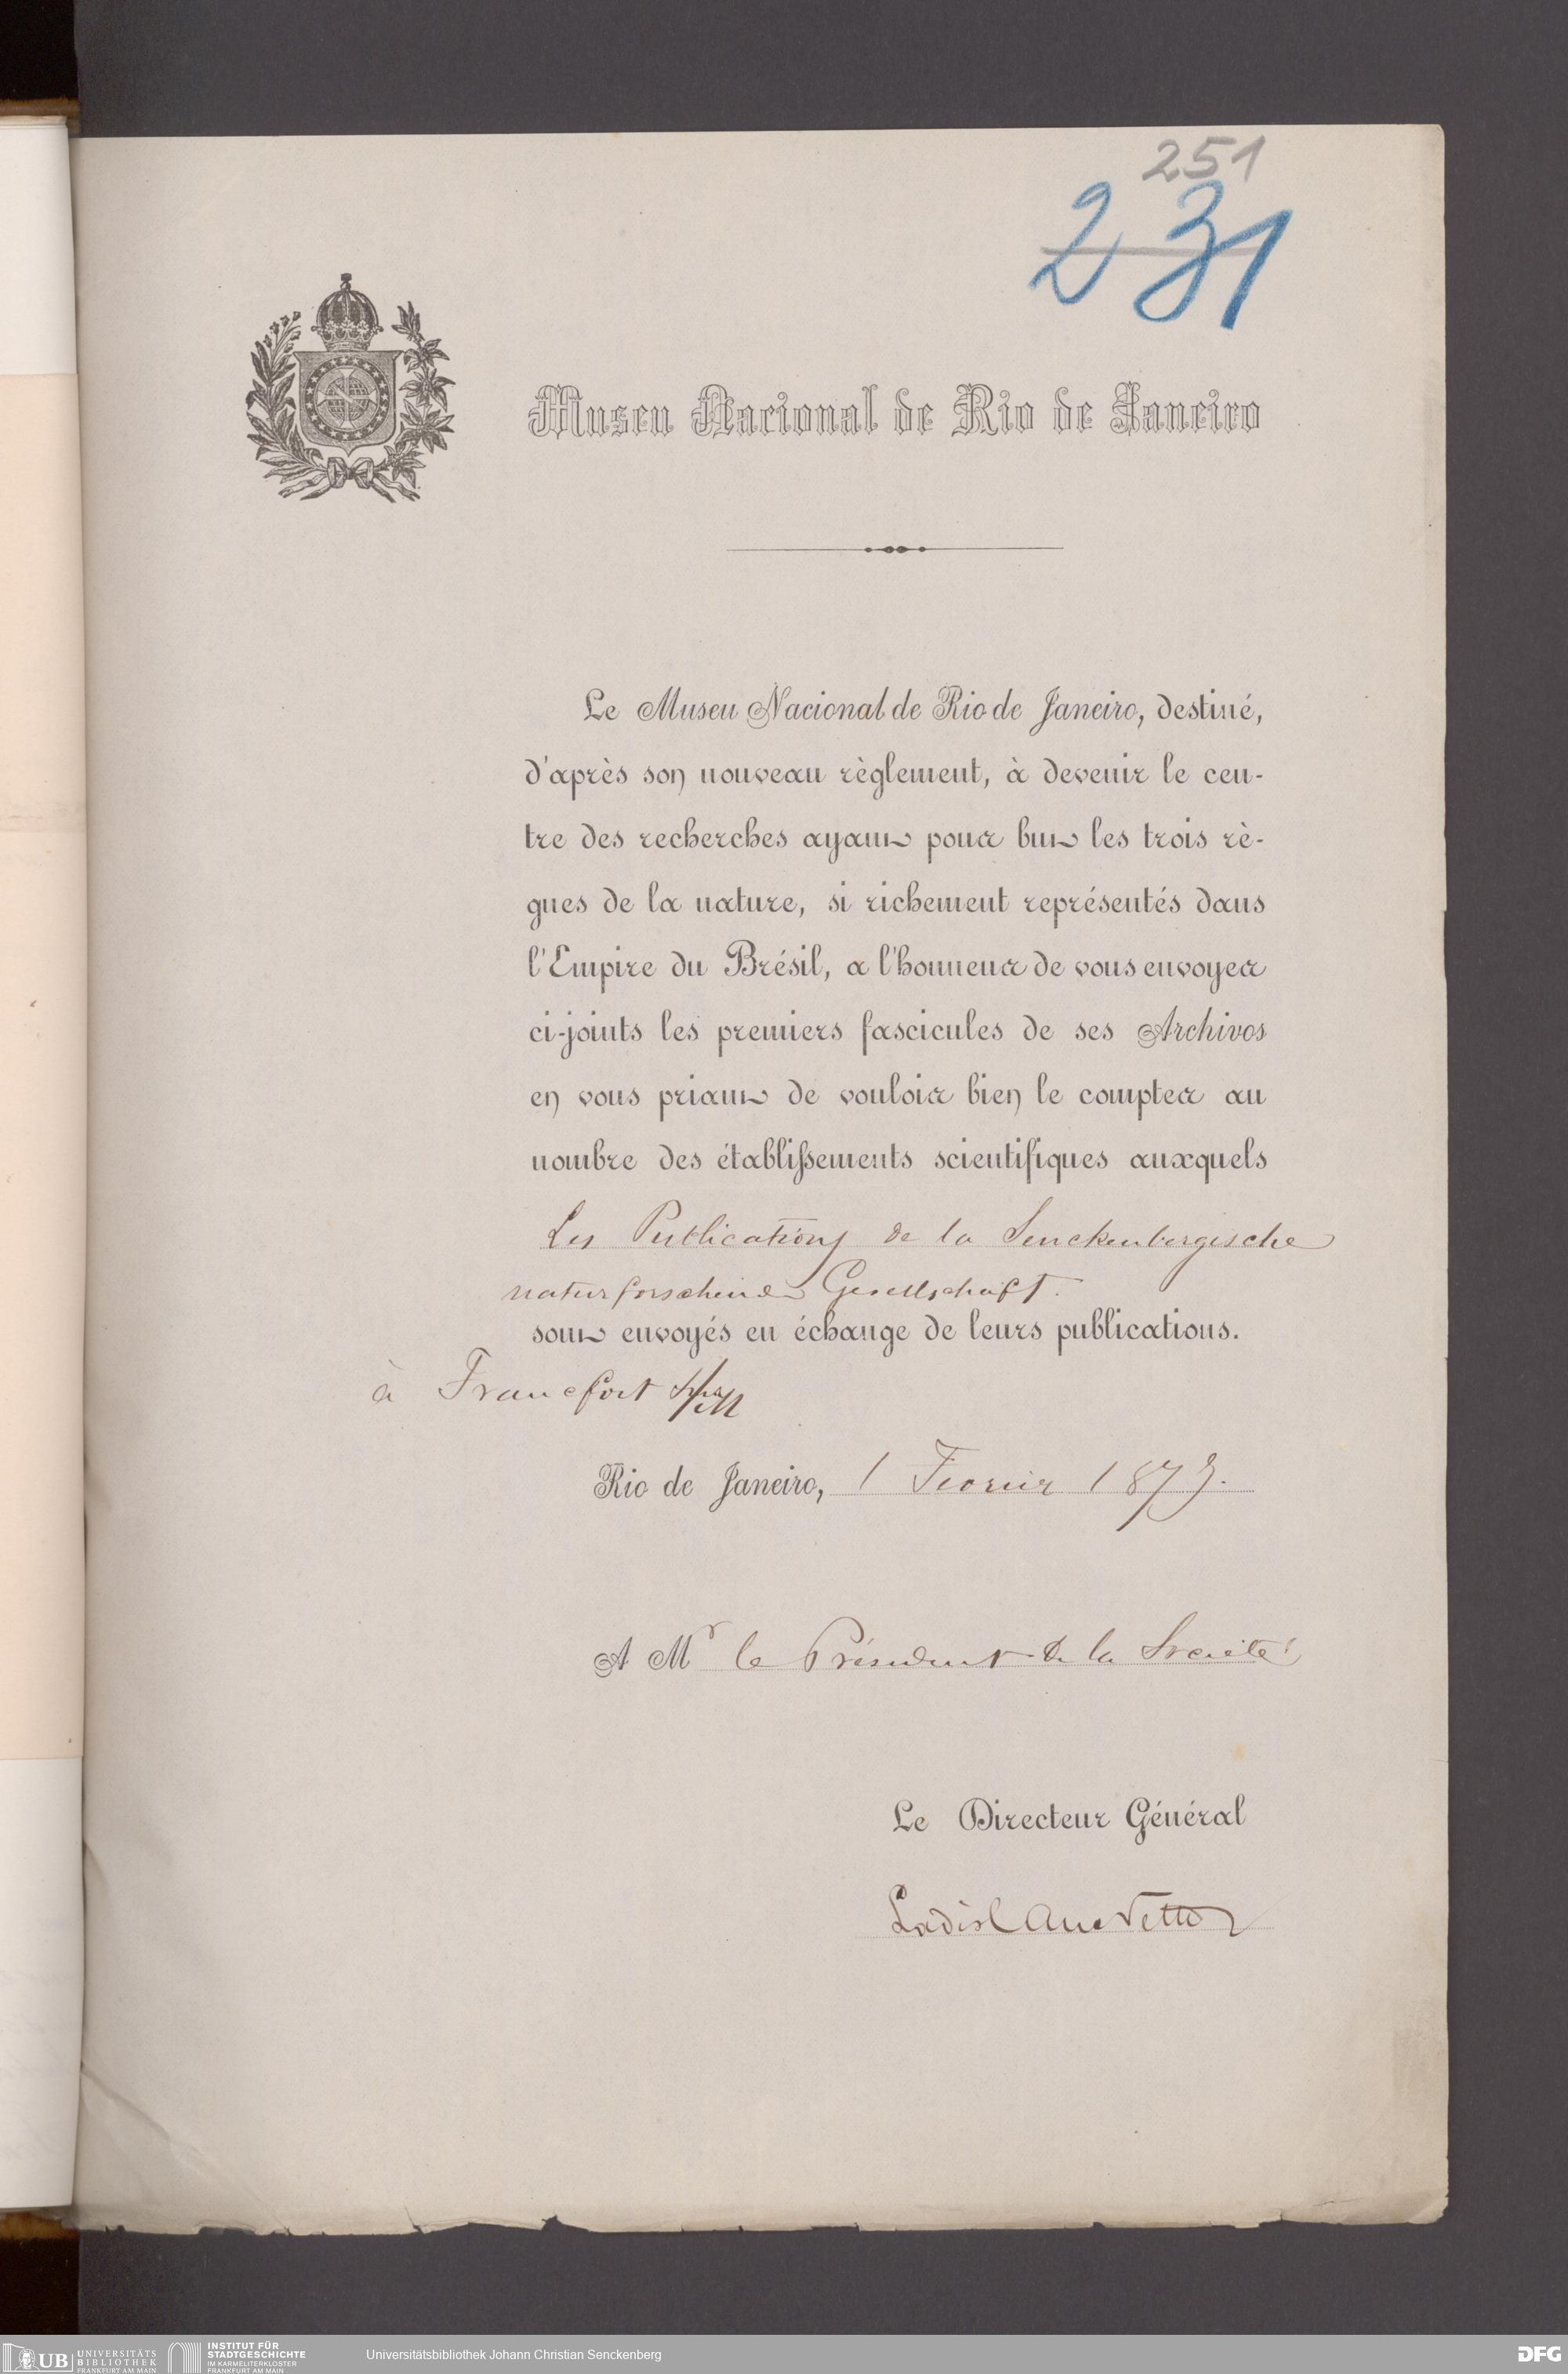 251
231
Museu Nacional de Rio de Janeiro
Le Museu Nacional de Rio de Janeiro, destiné,
d'après son nouveau règlement, à devenir le cen-
tre des recherches ayant pour but les trois rè-
gnes de la nature, si richement représentés dans
l'Empire du Brésil, a l'honneur de vous envoyer
ci-joints les premiers fascicules de ses Archivos
en vous priant de vouloir bien le compter au
nombre des établissements scientifiques auxquels
Les Publications de la Senckenbergische
naturforschende Gesellschaft.
sont envoyés en échange de leurs publications.
à Francfort s/M
Rio de Janeiro, 1 Fevrier 1879.
A Mr le Président de la Société
Le Directeur Général
Ladislau Netto
UB UNIVERSITÄTS
BIBLIOTHEK
FRANKFURT AM MAIN
INSTITUT FÜR
STADTGESCHICHTE
IM KARMELITERKLOSTER
FRANKFURT AM MAIN
Universitätsbibliothek Johann Christian Senckenberg
DFG